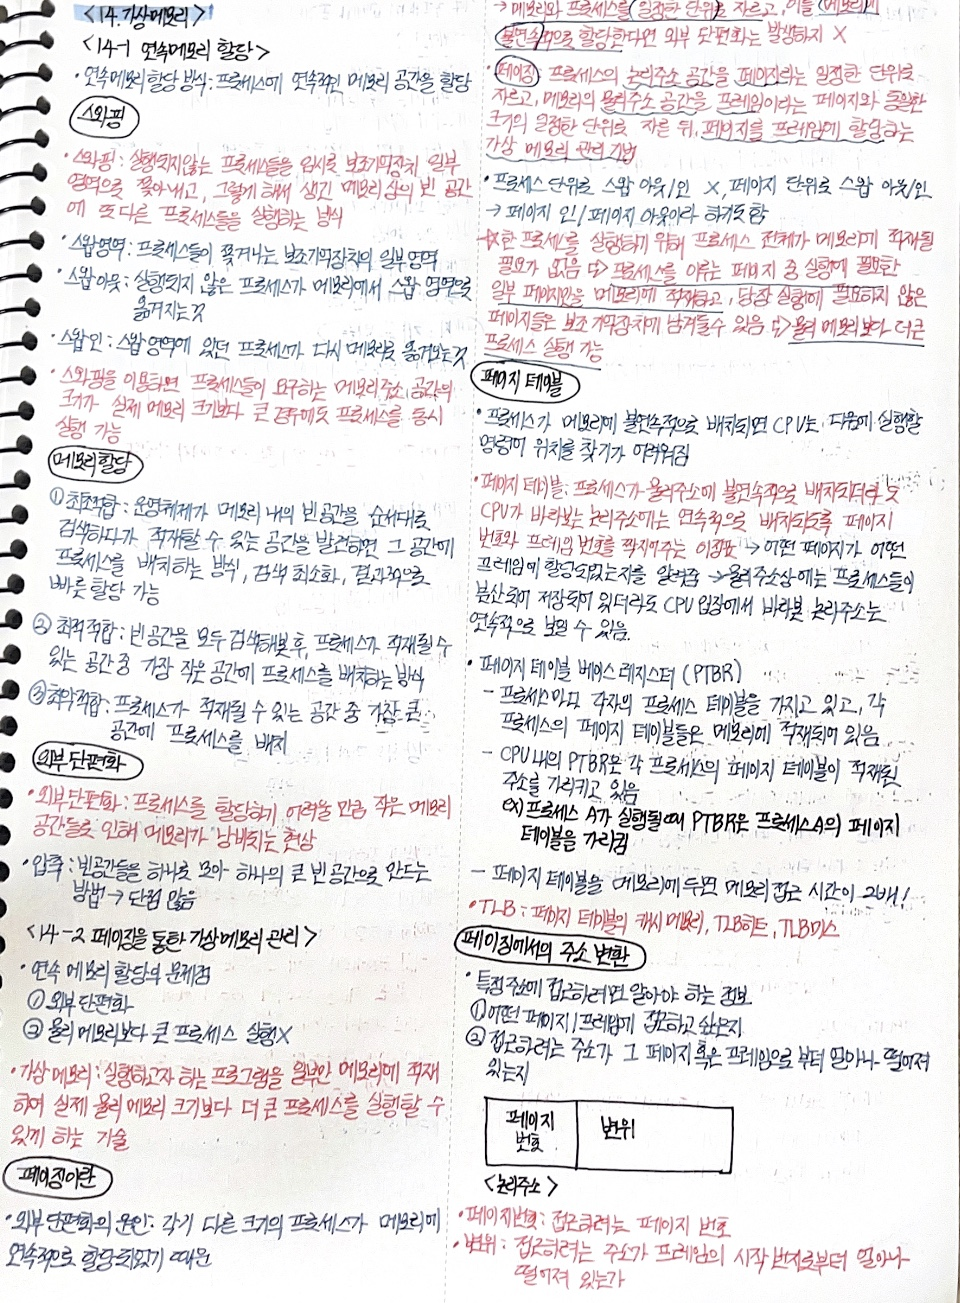 <14. 가상메모리>
<14-1 연속메모리 할당>
· 연속메모리 할당 방식 : 프로세스에 연속적인 메모리 공간을 할당
스와핑
· 스와핑 : 실행되지않는 프로세스들을 임시로 보조기억장치 일부
영역으로 쫓아내고, 그렇게 해서 생긴 메모리상의 빈 공간
에 또다른 프로세스들을 실행하는 방식
· 스왑영역 : 프로세스들이 쫓겨나는 보조기억장치의 일부영역
· 스왑 아웃 : 실행되지 않은 프로세스가 메모리에서 스왑 영역으로
옮겨지는 것
· 스왑 인 : 스왑 영역에 있던 프로세스가 다시 메모리로 옮겨오는 것
· 스와핑을 이용하면 프로세스들이 요구하는 메모리주소 공간의
크기가 실제 메모리 크기보다 큰 경우에도 프로세스를 동시
실행 가능
메모리 할당
① 최초적합 : 운영체제가 메모리 내의 빈공간을 순서대로
검색하다가 적재할 수 있는 공간을 발견하면 그 공간에
프로세스를 배치하는 방식, 검색 최소화, 결과적으로
빠른 할당 가능
② 최적 적합 : 빈공간을 모두 검색해본 후, 프로세스가 적재될 수
있는 공간 중 가장 작은 공간에 프로세스를 배치하는 방식
③ 최악적합 : 프로세스가 적재될 수 있는 공간 중 가장 큰
공간에 프로세스를 배치
외부 단편화
· 외부단편화 : 프로세스를 할당하기 어려울 만큼 작은 메모리
공간들로 인해 메모리가 낭비되는 현상
· 압축 : 빈공간들을 하나로 모아 하나의 큰 빈 공간으로 만드는
방법 → 단점 많음
<14-2 페이징을 통한 가상 메모리 관리>
· 연속 메모리 할당의 문제점
① 외부 단편화
② 물리 메모리보다 큰 프로세스 실행X
· 가상 메모리 : 실행하고자 하는 프로그램을 일부만 메모리에 적재
하여 실제 물리 메모리 크기보다 더 큰 프로세스를 실행할 수
있게 하는 기술
페이징이란
· 외부 단편화의 원인 : 각기 다른 크기의 프로세스가 메모리에
연속적으로 할당되었기 때문
→ 메모리와 프로세스를 일정한 단위로 자르고, 이를 메모리에
불연속적으로 할당한다면 외부 단편화는 발생하지 X
· 페이징 : 프로세스의 논리주소 공간을 페이지라는 일정한 단위로
자르고, 메모리의 물리주소 공간을 프레임이라는 페이지와 동일한
크기의 일정한 단위로 자른 뒤, 페이지를 프레임에 할당하는
가상 메모리 관리 기법
· 프로세스 단위로 스왑 아웃/인 X, 페이지 단위로 스왑 아웃/인
→ 페이지 인/페이지 아웃이라 하기도 함
한 프로세스를 실행하기 위해 프로세스 전체가 메모리에 적재될
필요가 없음 ⇨ 프로세스를 이루는 페이지 중 실행에 필요한
일부 페이지만을 메모리에 적재하고, 당장 실행에 필요하지 않은
페이지들은 보조기억장치에 남겨둘수 있음 ⇨ 물리 메모리보다 더 큰
프로세스 실행 가능
페이지 테이블
· 프로세스가 메모리에 불연속적으로 배치되면 CPU는 다음에 실행할
명령어 위치를 찾기가 어려워짐
· 페이지 테이블 : 프로세스가 물리주소에 불연속적으로 배치되더라도
CPU가 바라보는 논리주소에는 연속적으로 배치되도록 페이지
번호와 프레임 번호를 짝지어주는 이정표 → 어떤 페이지가 어떤
프레임에 할당되었는지를 알려줌 → 물리주소상에는 프로세스들이
분산되어 저장되어 있더라도 CPU 입장에서 바라본 논리주소는
연속적으로 보일 수 있음.
· 페이지 테이블 베이스 레지스터 (PTBR)
- 프로세스마다 각자의 프로세스 테이블을 가지고 있고, 각
프로세스의 페이지 테이블들은 메모리에 적재되어 있음
- CPU 내의 PTBR은 각 프로세스의 페이지 테이블이 적재된
주소를 가리키고 있음
ex) 프로세스 A가 실행될 때 PTBR은 프로세스A의 페이지
테이블을 가리킴
- 페이지 테이블을 메모리에 두면 메모리 접근 시간이 2배!
· TLB : 페이지 테이블의 캐시 메모리, TLB히트, TLB미스
페이징에서의 주소 변환
· 특정 주소에 접근하려면 알아야 하는 정보
① 어떤 페이지/프레임에 접근하고 싶은지
② 접근하려는 주소가 그 페이지 혹은 프레임으로 부터 얼마나 떨어져
있는지
페이지 변위
번호
<논리주소>
· 페이지번호 : 접근하려는 페이지 번호
· 변위 : 접근하려는 주소가 프레임의 시작 번지로부터 얼마나
떨어져 있는가